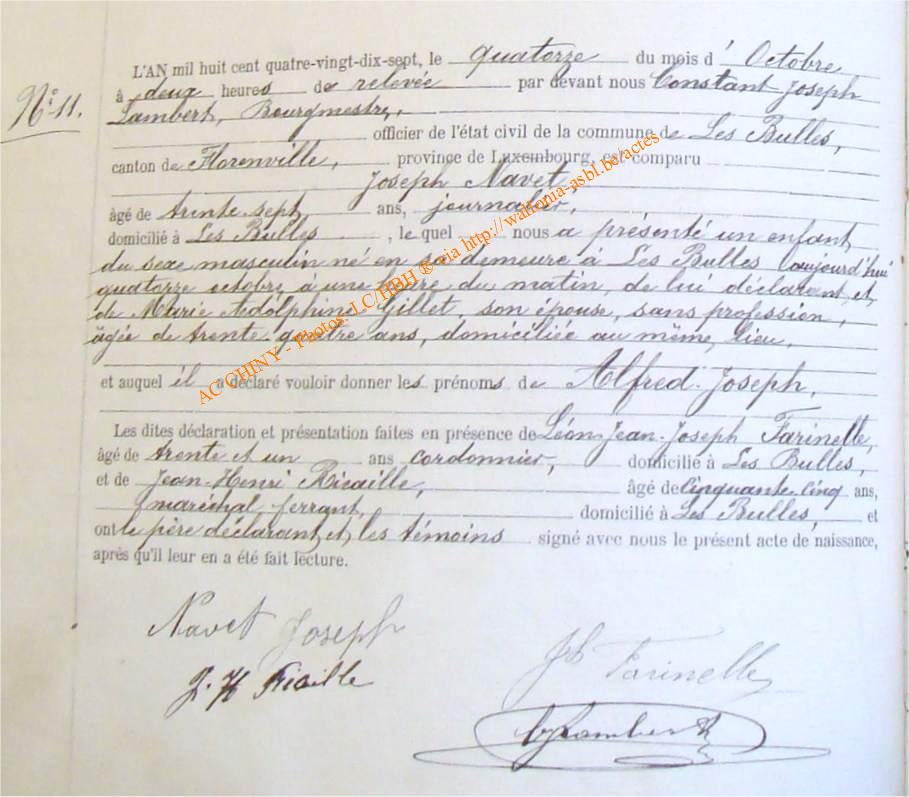 L'AN mil huit cent quatre-vingt-dix-sept, le quatorze du mois d' Octobre
N° 11.
à deux heures de relevée par devant nous Constant Joseph
Lambert, Bourgmestre,
officier de l'état civil de la commune de Les Bulles,
canton de Florenville, province de Luxembourg, est comparu
Joseph Navet,
âgé de trente-sept ans, journalier,
domicilié à Les Bulles, le quel nous a présenté un enfant
du sexe masculin né en sa demeure à Les Bulles aujourd'hui
quatorze octobre, à une heure du matin, de lui déclarant, et
de Marie Adélphine Gillet, son épouse, sans profession,
âgée de trente-quatre ans, domiciliée au même lieu.
et auquel il a déclaré vouloir donner les prénoms de Alfred-Joseph.
Les dites déclaration et présentation faites en présence de Léon-Jean-Joseph Farinelle,
âgé de trente et un ans cordonnier, domicilié à Les Bulles,
et de Jean-Henri Ricaille, âgé de cinquante-cinq ans,
maréchal ferrant, domicilié à Les Bulles, et
ont le père déclarant et les témoins signé avec nous le présent acte de naissance,
après qu'il leur en a été fait lecture.
Navet Joseph
J. H Ricaille
Farinelle
Lambert
AC CHINY - Photos: LC/HBH ® via http://wallonia-asbl.be/actes